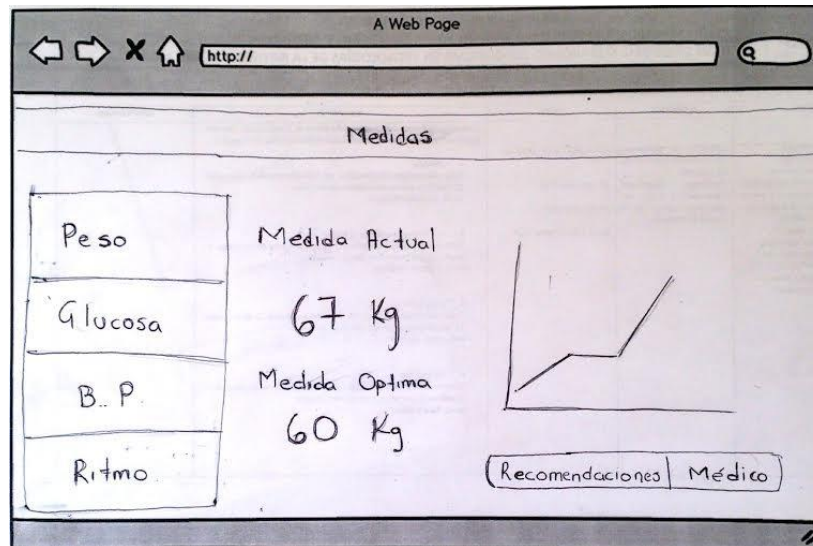 A Web Page
http://
Medidas
Peso
Glucosa
B.. P.
Ritmo
Medida Actual
67 Kg
Medida Optima
60 Kg
Recomendaciones Médico